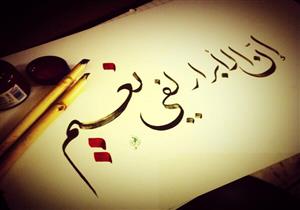 إن الأبرار لفي نعيم